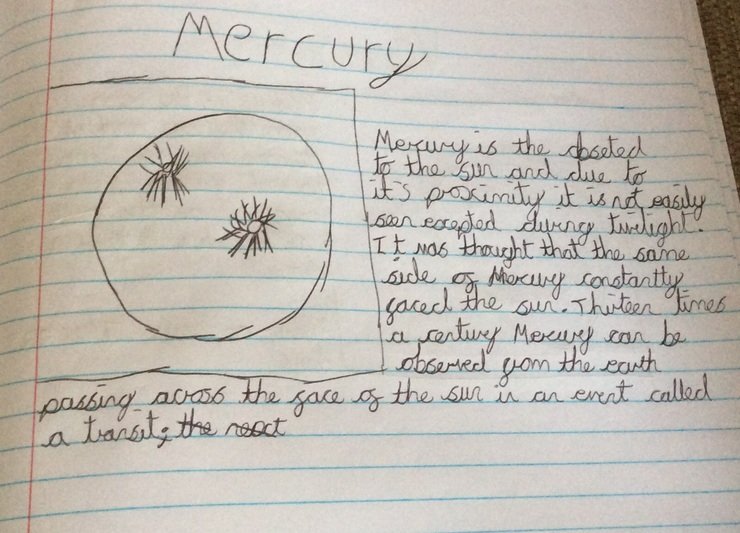 Mercury
Mercury is the closeted
to the sun and due to
it's proximity it is not easily
seen excepted during twilight.
It was thought that the same
side of Mercury constantly
faced the sun. Thirteen times
a century Mercury can be
observed from the earth
passing across the face of the sun in an event called
a transit, the next